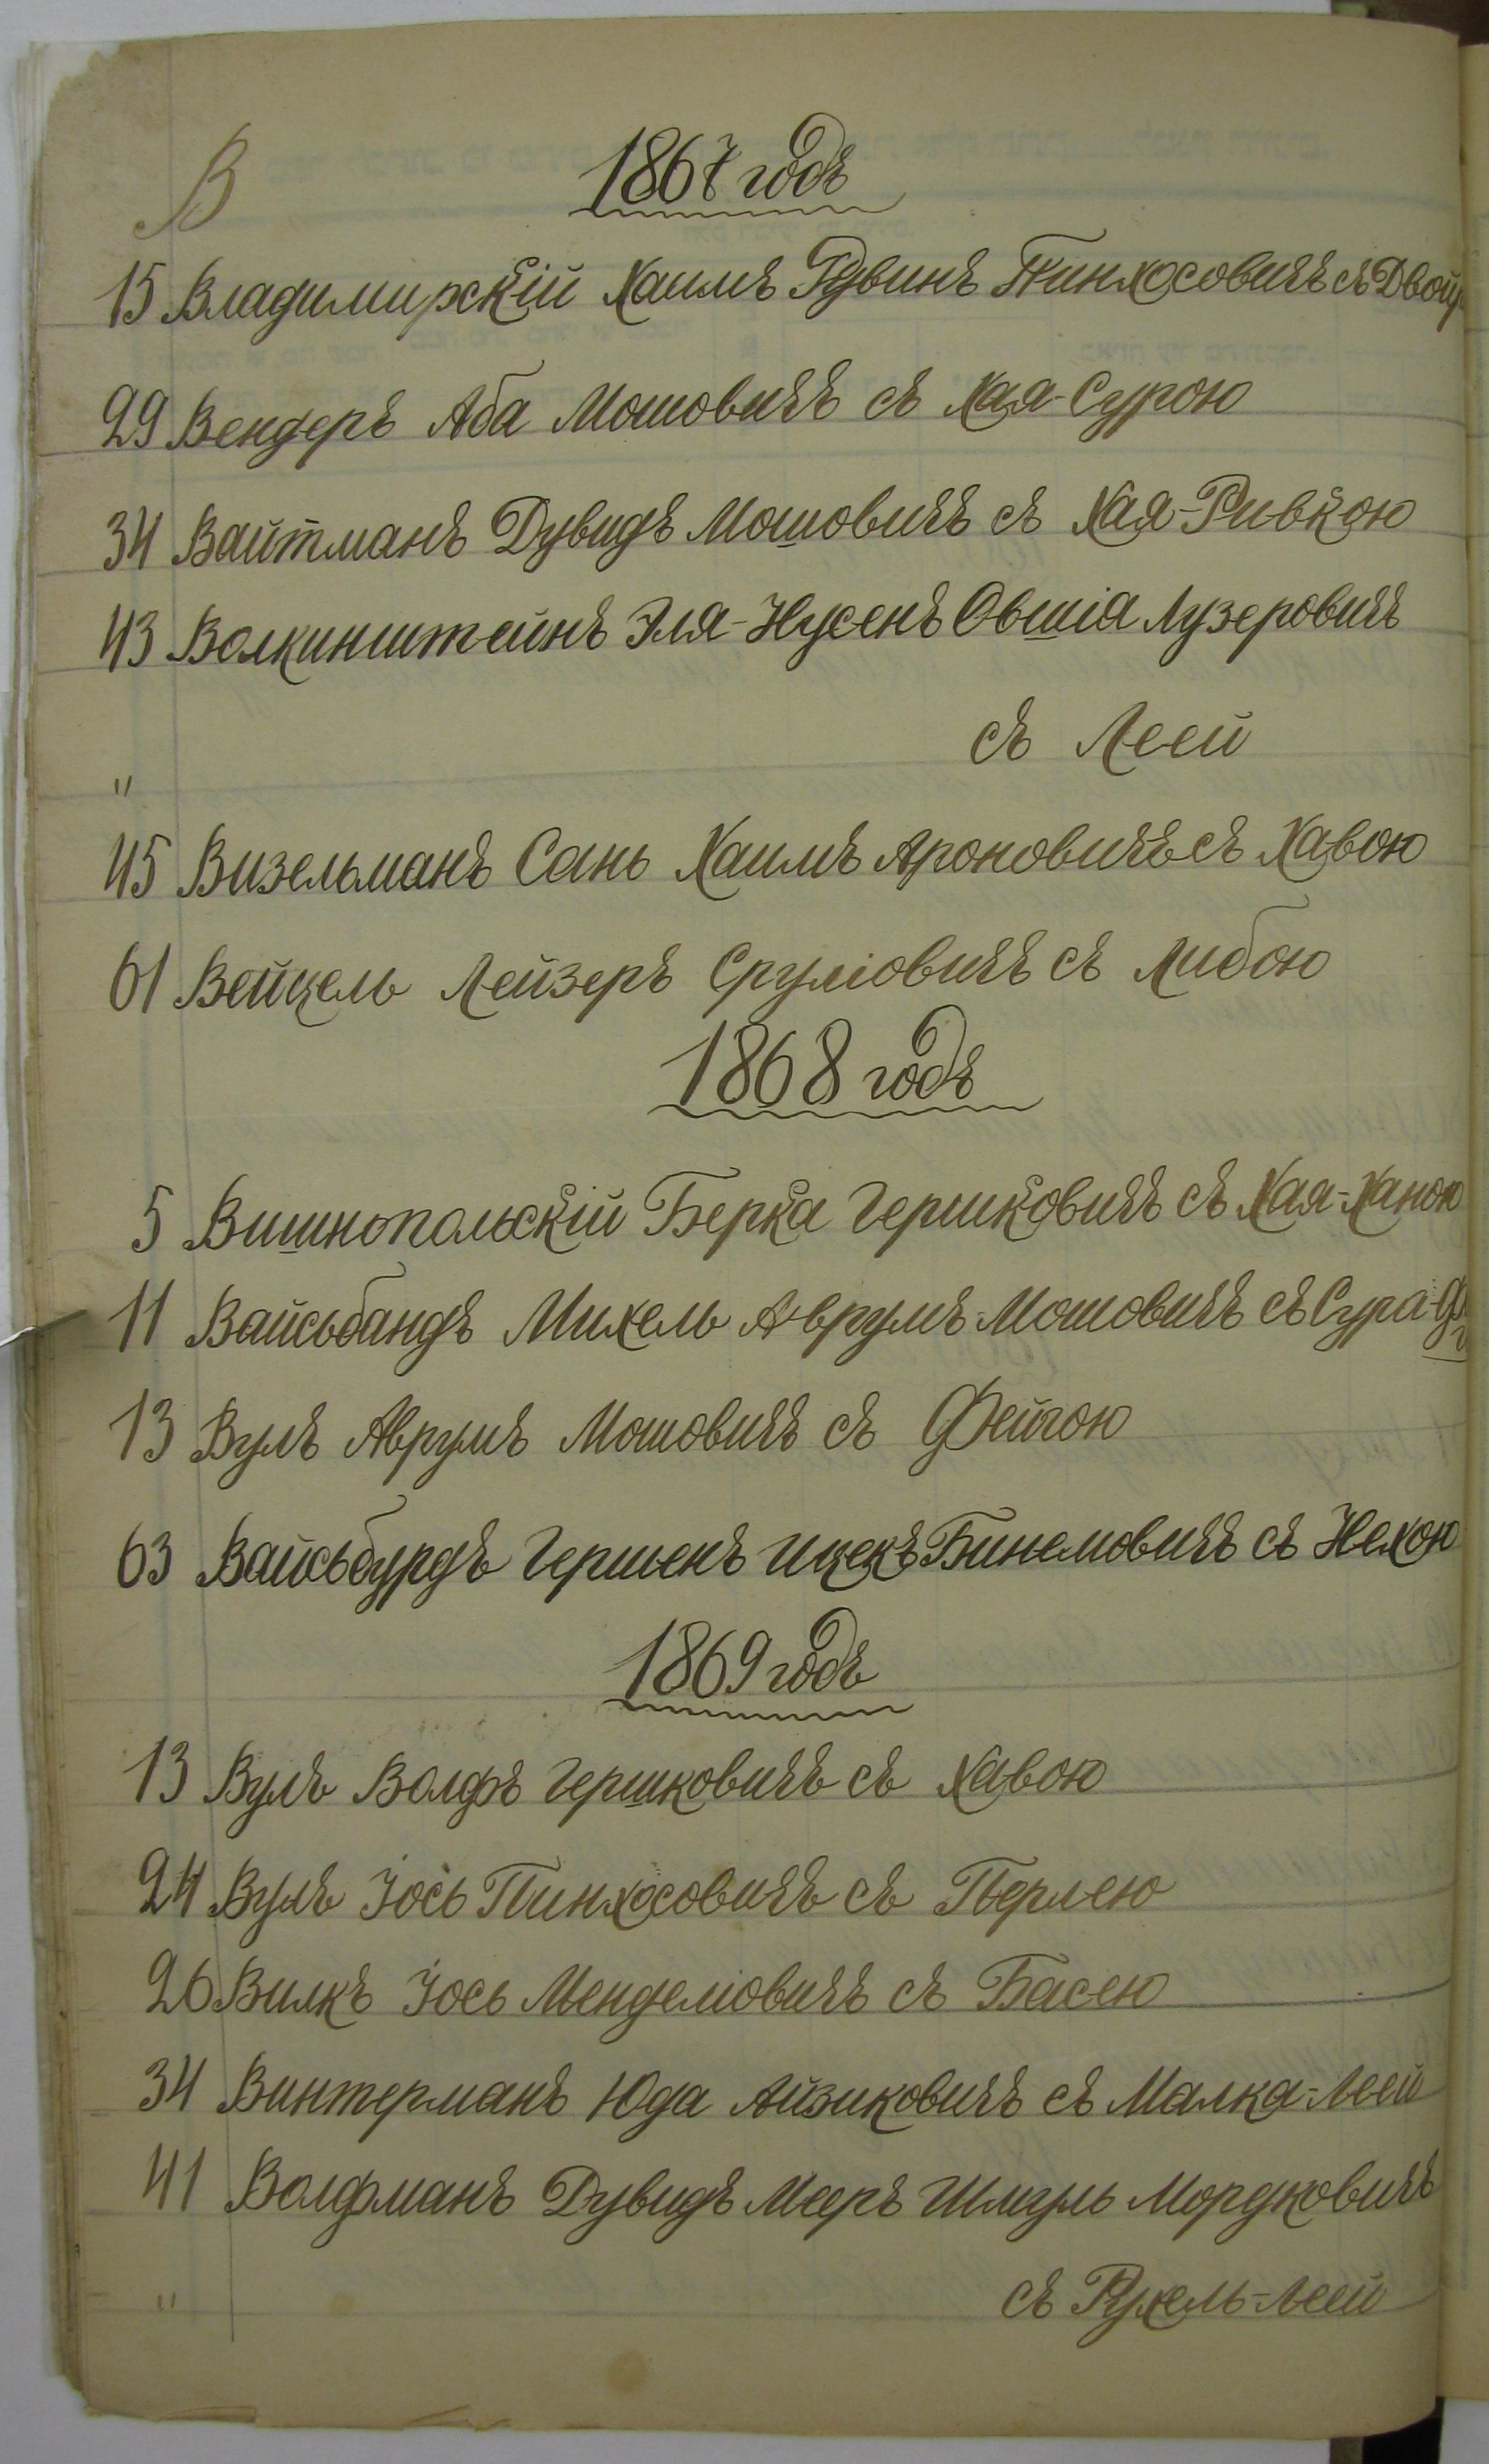 В
1867 годъ
15 Владимирскій Хаимъ Рувинъ Пинхосовичъ съ Двой
29 Вендеръ Аба Мошовичъ съ Хая-Сурою
34 Вайтманъ Дувидъ Мошовичъ съ Хая-Ривкою
43 Волкинштейнъ Эля-Нусенъ Овшіа Лузеровичъ
съ Леей
"
45 Визельманъ Сань Хаимъ Ароновичъ съ Хавою
61 Вейцель Лейзеръ Сруліовичъ съ Либою
1868 годъ
5 Вишнопольскій Берка Гершковичъ съ Хая-Ханою
11 Вайсьбандъ Михель Аврумъ-Мошовичъ съ Сура
13 Вулъ Аврумъ Мошовичъ съ Фейгою
63 Вайсьбурдъ Гершенъ Ицекъ Бинемовичъ съ Нехою
1869 годъ
13 Вулъ Волфъ Гершковичъ съ Хавою
24 Вулъ Іось Пинхосовичъ съ Перлею
26 Вилкъ Іось Менделіовичъ съ Басею
34 Винтерманъ Юда Айзиковичъ съ Малка-Леей
41 Волфманъ Дувидъ Мееръ Шмуль Мордковичъ
" съ Рухель-Леей